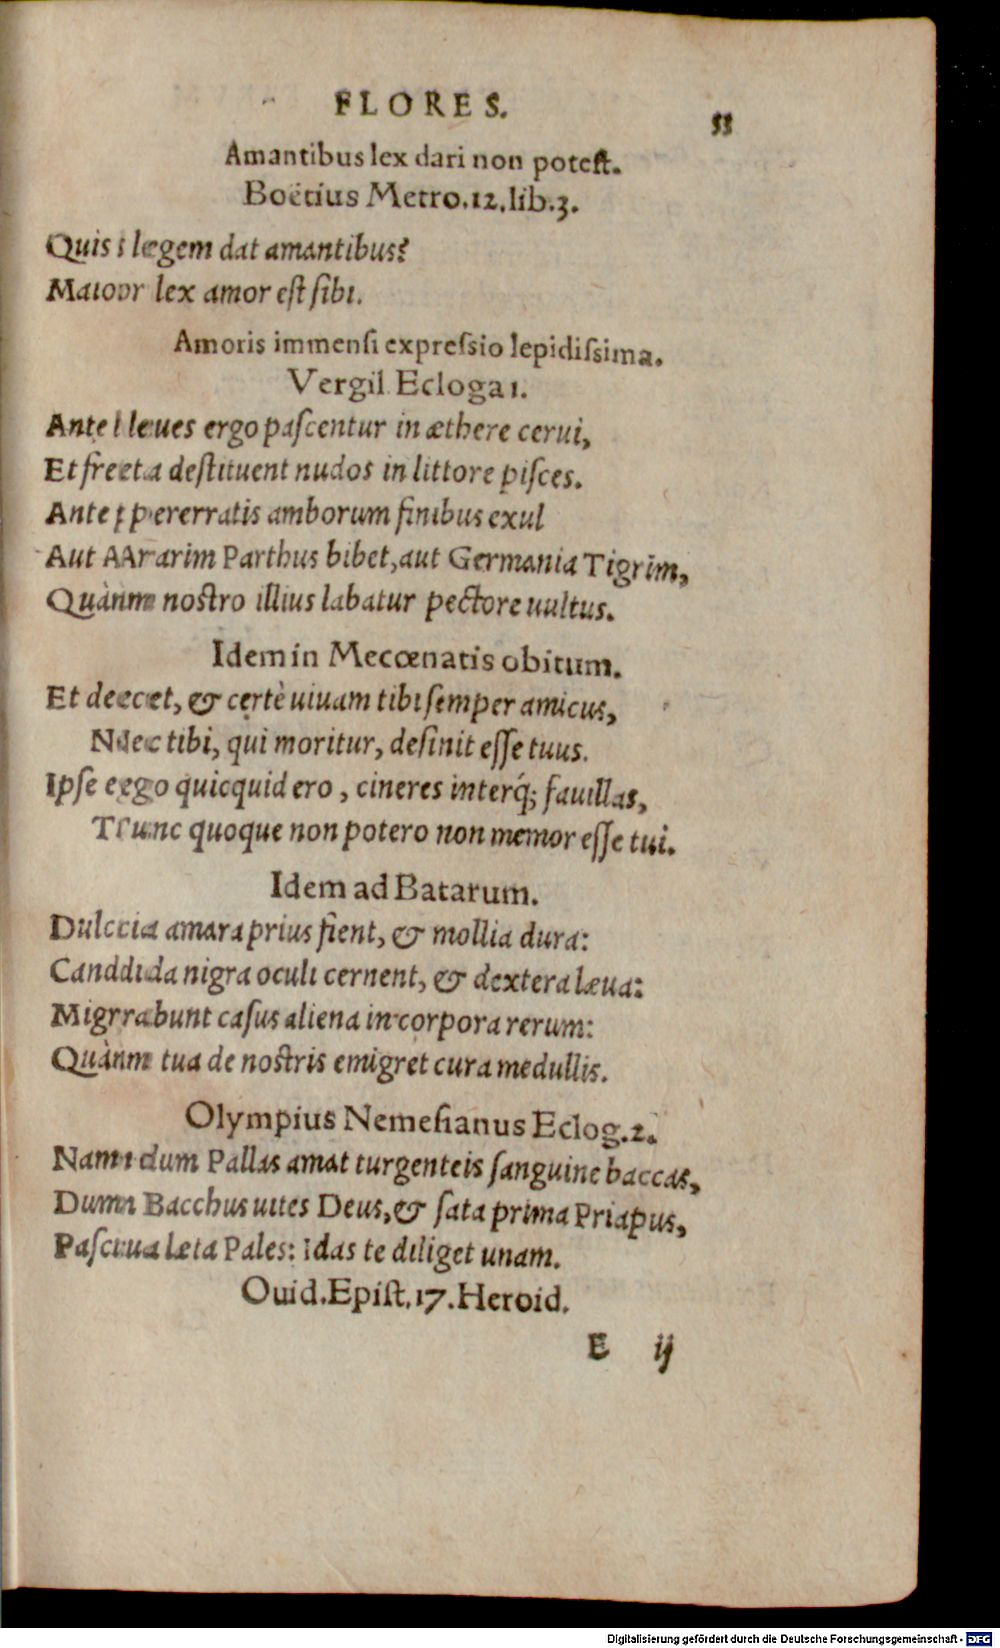 FLORES.
55
Amantibus lex dari non poteſt.
Boëtius Metro.12.lib.3.
Quis legem dat amantibus?
Maior lex amor eſt ſibi.
Amoris immenſi expreſsio lepidiſsima.
Vergil Ecloga 1.
Ante leues ergo paſcentur in æthere cerui,
Et freta deſtituent nudos in littore piſces.
Ante pererratis amborum finibus exul
Aut Ararim Parthus bibet, aut Germania Tigrim,
Quàm noſtro illius labatur pectore uultus.
Idem in Mecœnatis obitum.
Et decet, & certè uiuam tibi ſemper amicus,
Nec tibi, qui moritur, deſinit eſſe tuus.
Ipſe ego quicquid ero, cineres interq́; fauillas,
Tunc quoque non potero non memor eſſe tui.
Idem ad Batarum.
Dulcia amara prius fient, & mollia dura:
Candida nigra oculi cernent, & dextera læua:
Migrabunt caſus aliena in corpora rerum:
Quàm tua de noſtris emigret cura medullis.
Olympius Nemeſianus Eclog.2.
Nam dum Pallas amat turgenteis ſanguine baccas,
Dum Bacchus uites Deus, & ſata prima Priapus,
Paſcua læta Pales: Idas te diliget unam.
Ouid.Epiſt.17.Heroid.
E ij
Digitalisierung gefördert durch die Deutsche Forschungsgemeinschaft - DFG